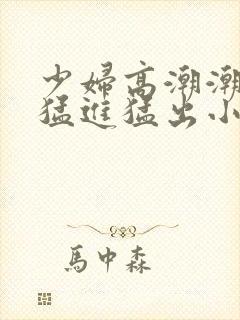 少婦高潮潮
猛進猛出小
馬中森